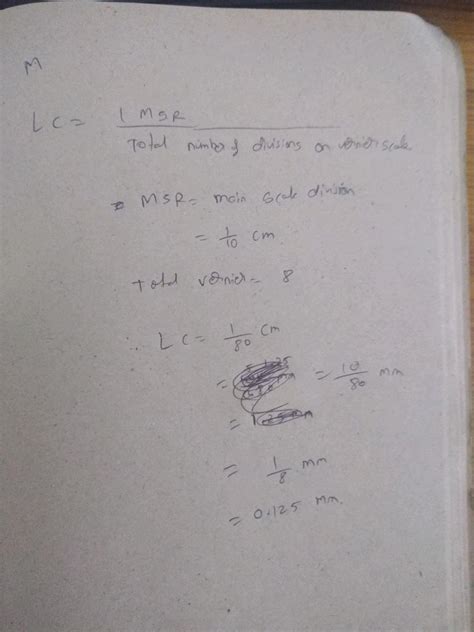 M
LC = 1 MSR / Total number of divisions on vernier scale
MSR = main scale division
= 1/10 cm
total vernier = 8
∴ LC = 1/80 cm
= = 10/80 mm
=
= 1/8 mm
= 0.125 mm